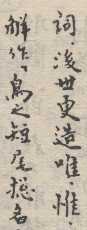 詞、後世更造唯、惟、
解作「鳥之短尾總名